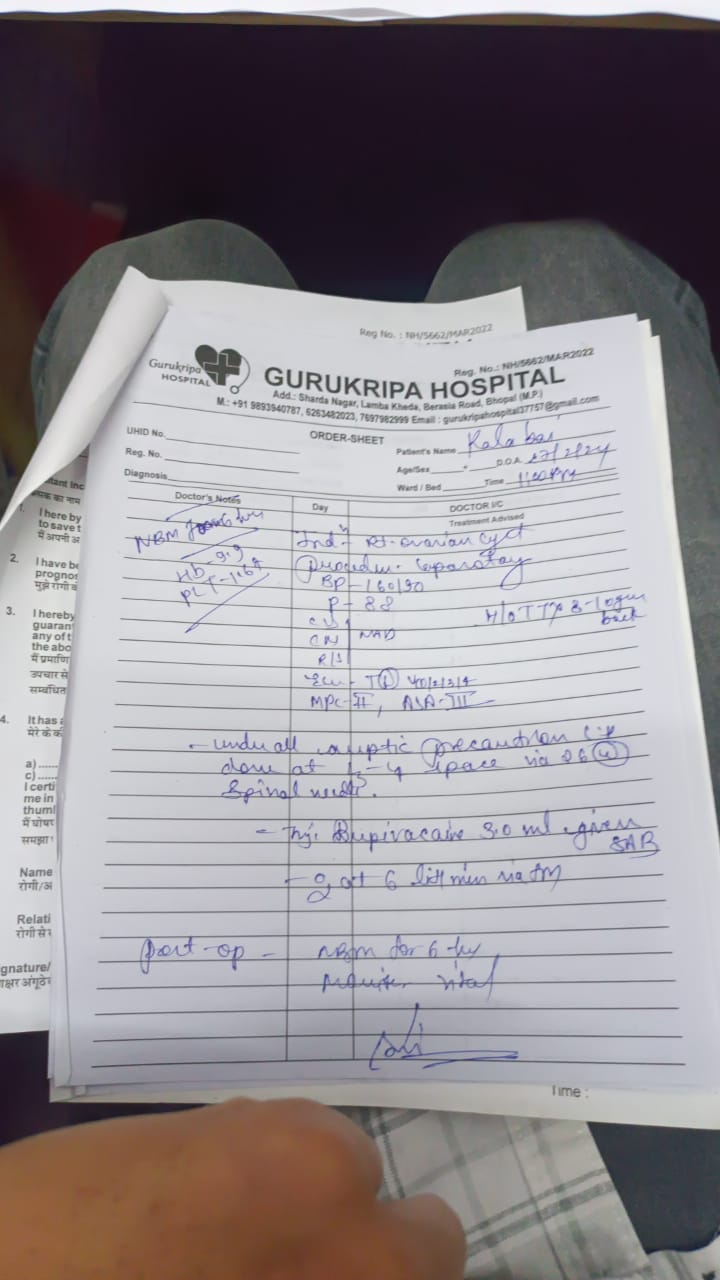 Reg No. : NH/5662/MAR2022
Reg. No.: NH/5662/MAR2022
Gurukripa
HOSPITAL
GURUKRIPA HOSPITAL
Add.: Sharda Nagar, Lamba Kheda, Berasia Road, Bhopal (M.P.)
M.: +91 9893940787, 6263482023, 7697982999 Email : gurukripahospital37757@gmail.com
ORDER-SHEET
UHID No.
Patient's Name Kala bai
Reg. No.
Age/Sex D.O.A. 27/2/24
Diagnosis
Ward / Bed Time
Doctor's Notes Day DOCTOR I/C
Treatment Advised
NBM
Hb - 9.9
PLT - 1.67
Ind - Rt. ovarian cyst
BP - 160/90
P - 88
CVS
CNS NAD
R/S
H/O
back
MPC - II, ASA - III
- under all aseptic precaution
done at L3-4 space via 26 G
Spinal needle.
- Inj. Bupivacaine 3.0 ml given
SAB
- O2 at 6 lit/min via FM
Post-op - NBM for 6 hr
Monitor vital
Time :
tant Inc
I here by
to save t
मैं अपनी अ
2. I have be
prognos
मुझे रोगी व
3. I hereby
guaran
any of t
the abo
मैं प्रमाणि
उपचार से
सम्बंधित
4. It has a
मेरे के की
a)......
c)......
I certi
me in
thuml
मैं घोषण
समझा
Name
रोगी/अ
Relati
रोगी से
gnature/